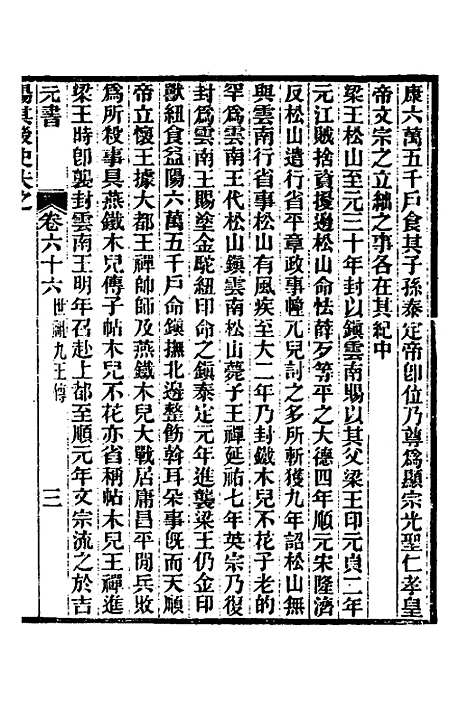 康六萬五千戶食其子孫泰定帝卽位乃尊爲顯宗光聖仁孝皇
帝文宗之立絀之事各在其紀中
梁王松山至元三十年封以鎭雲南賜以其父梁王印元貞二年
元江賊捨資擾邊松山命怯薛歹等平之大德四年順元宋隆濟
反松山遣行省平章政事幢兀兒討之多所斬獲九年詔松山無
與雲南行省事松山有風疾至大二年乃封鐵木兒不花子老的
罕爲雲南王代松山鎭雲南松山薨子王禪延祐七年英宗乃復
封爲雲南王賜塗金駝紐印命之鎭泰定元年進襲梁王仍金印
獸紐食益陽六萬五千戶命鎭撫北邊整飭斡耳朵事旣而天順
帝立懷王據大都王禪帥師及燕鐵木兒大戰居庸昌平閒兵敗
爲所殺事具燕鐵木兒傳子帖木兒不花亦省稱帖木兒王禪進
梁王時卽襲封雲南王明年召赴上都至順元年文宗流之於吉
元書
卷六十六
世祖九王傳
三